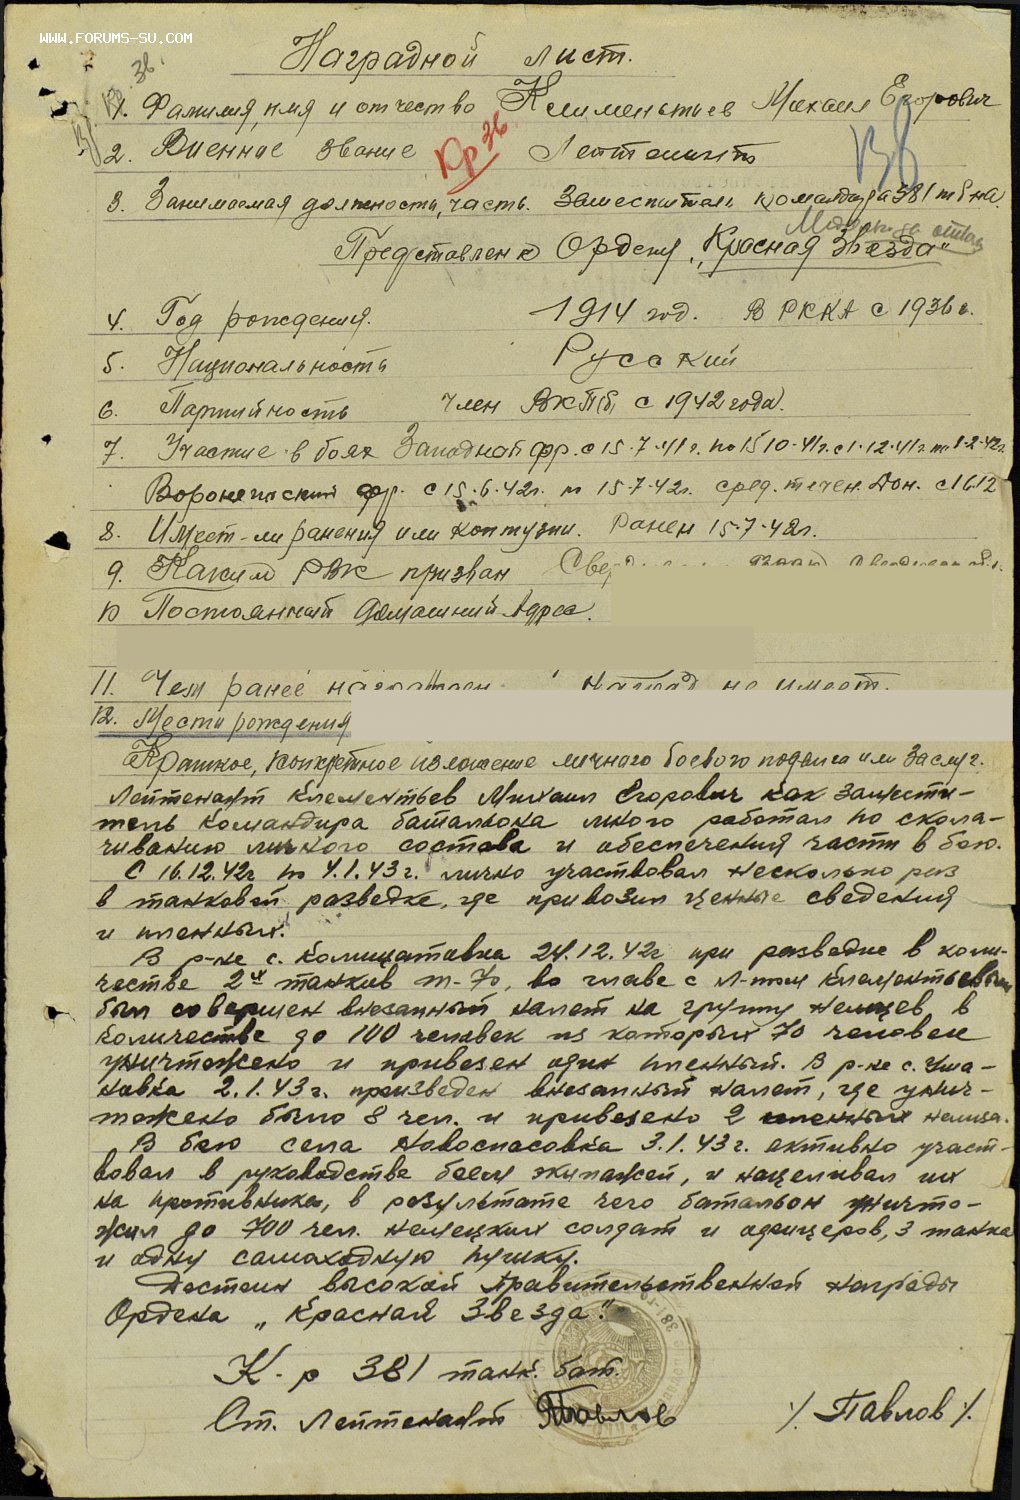 WWW.FORUMS-SU.COM
Наградной лист.
Кр. Зв.
1. Фамилия, имя и отчество Климентьев Михаил Егорович
2. Военное звание Лейтенант
Кр Зв
3. Занимаемая должность, часть. Заместитель командира 381 т б-на
Представлен к Ордену „Красная Звезда"
4. Год рождения. 1914 год. В РККА с 1936 г.
5. Национальность Русский
6. Партийность член ВКП(б) с 1942 года.
7. Участие в боях Западной фр. с 15.7.41г. по 15 10.41г. с 1.12.41г. по 1.2.42г.
Воронежский фр. с 15.6.42г. по 15.7.42г. сред. течен. Дон. с 16.12
8. Имеет-ли ранения или контузии. Ранен 15.7.42г.
9. Каким РВК призван
10 Постоянный домашний Адрес.
11. Чем ранее награжден наград не имеет.
12. Место рождения
Краткое, конкретное изложение личного боевого подвига или заслуг.
Лейтенант Клементьев Михаил Егорович как замести-
тель командира батальона много работал по скола-
чиванию личного состава и обеспечения части в бою.
С 16.12.42г по 4.1.43г. лично участвовал несколько раз
в танковой разведке, где привозил ценные сведения
и пленных.
В р-не с. Колищатовка 24.12.42г при разведке в коли-
честве 2х танков т-70, во главе с л-том Клементьевым
был совершен внезапный налет на группу немцев в
количестве до 100 человек из которых 70 человек
уничтожено и привезен один пленный. В р-не с. Чша-
новка 2.1.43г. произведен внезапный налет, где унич-
тожено было 8 чел. и привезено 2 пленных немца.
В бою села Новоспасовка 3.1.43г. активно участ-
вовал в руководстве боем экипажей, и нацеливал их
на противника, в результате чего батальон уничто-
жил до 700 чел. немецких солдат и офицеров, 3 танка
и одну самоходную пушку.
Достоин высокой Правительственной награды
Ордена „Красная Звезда".
К-р 381 танк. бат.
Ст. Лейтенант Павлов /Павлов/.